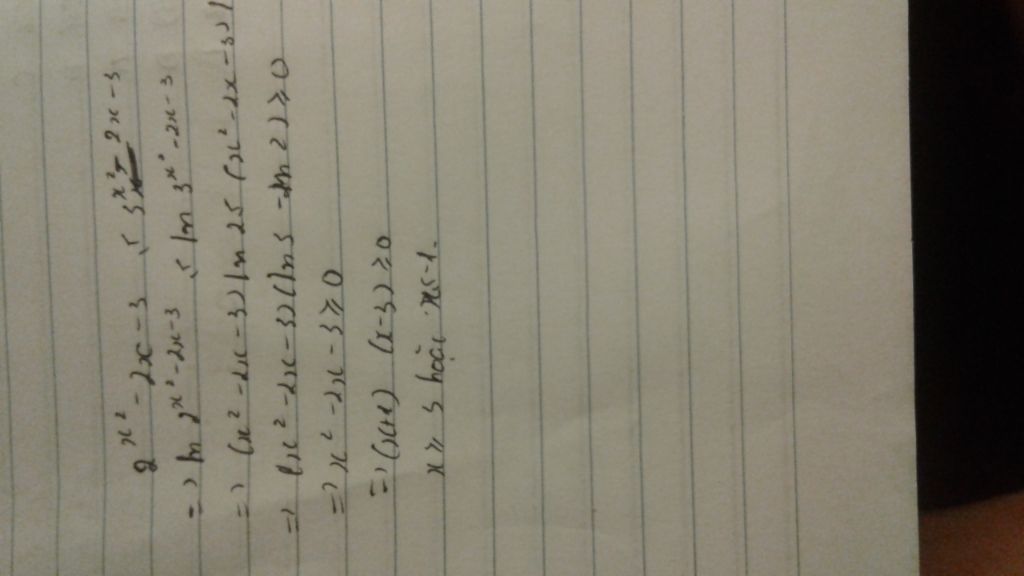 2^{x²-2x-3} ≤ 3^{x²-2x-3}
=> ln 2^{x²-2x-3} ≤ ln 3^{x²-2x-3}
=> (x²-2x-3) ln 2 ≤ (x²-2x-3) l
=> (x²-2x-3)(ln 3 - ln 2) ≥ 0
=> x²-2x-3 ≥ 0
=> (x+1) (x-3) ≥ 0
x ≥ 3 hoặc x ≤ -1.